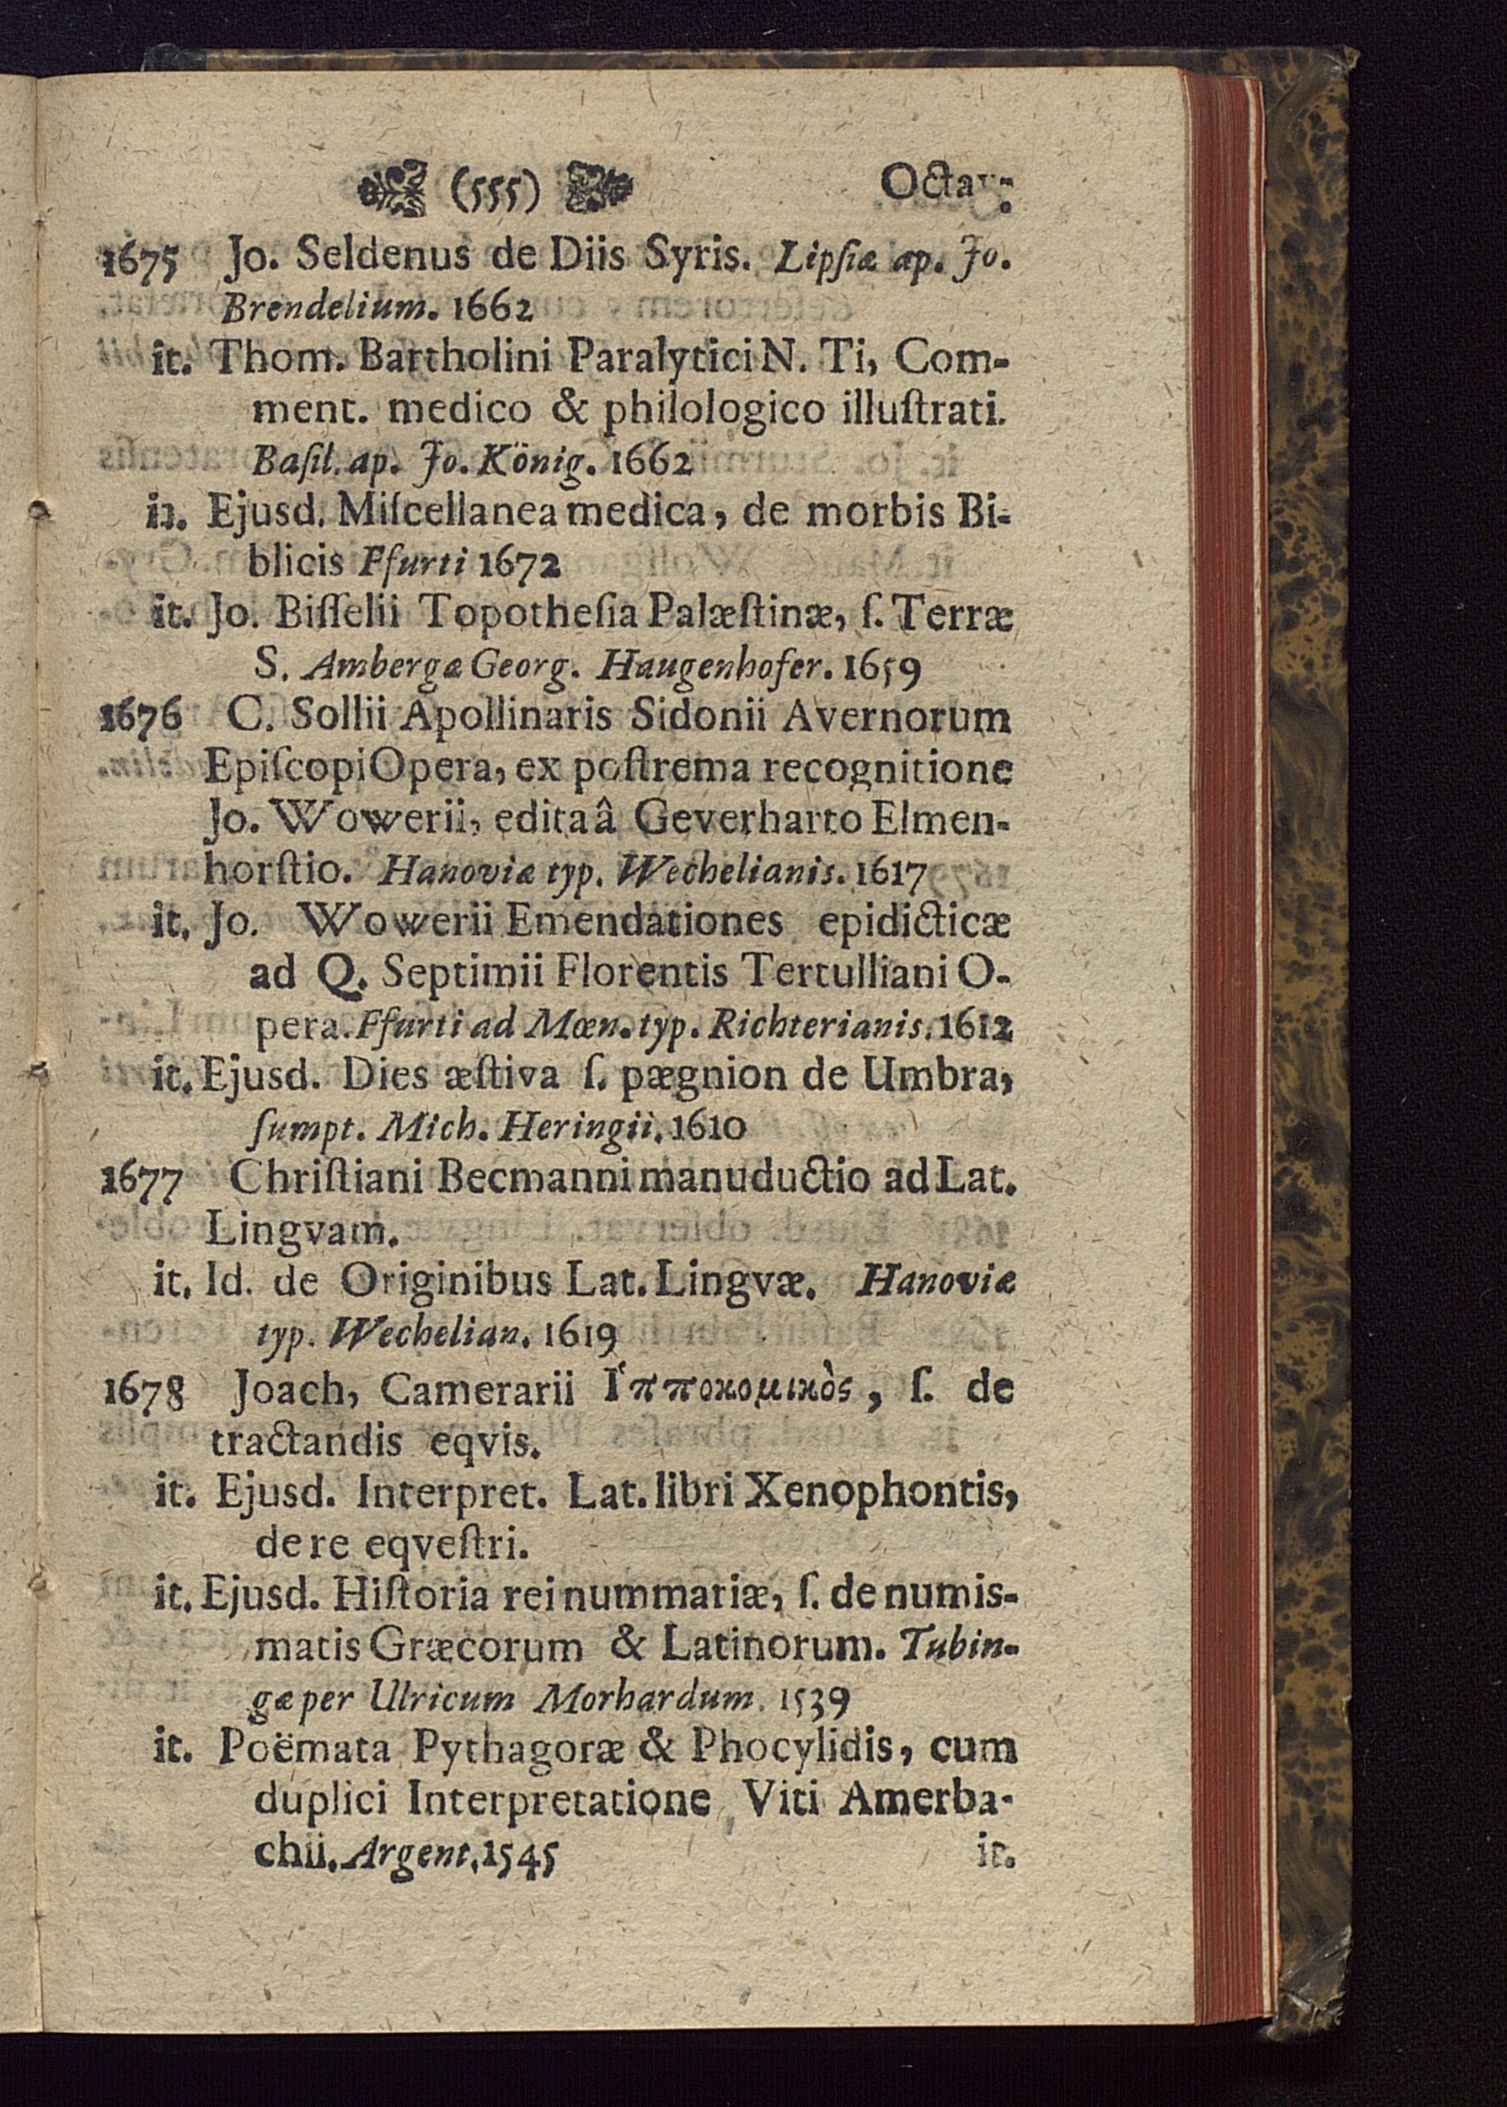 (555) Octav:
1675 Jo. Seldenus de Diis Syris. Lipſiæ ap. Jo.
Brendelium. 1662
it. Thom. Bartholini Paralytici N. Ti, Com-
ment. medico & philologico illuſtrati.
Baſil. ap. Jo. König. 1662
it. Ejusd. Miſcellanea medica, de morbis Bi-
blicis Ffurti 1672
it. Jo. Biſſelii Topotheſia Palæſtinæ, ſ. Terræ
S. Ambergæ Georg. Haugenhofer. 1659
1676 C. Sollii Apollinaris Sidonii Avernorum
Epiſcopi Opera, ex poſtrema recognitione
Jo. Wowerii, edita â Geverharto Elmen-
horſtio. Hanoviæ typ. Wechelianis. 1617
it. Jo. Wowerii Emendationes epidicticæ
ad Q. Septimii Florentis Tertulliani O-
pera. Ffurti ad Mœn. typ. Richterianis. 1612
it. Ejusd. Dies æſtiva ſ. pægnion de Umbra,
ſumpt. Mich. Heringii. 1610
1677 Chriſtiani Becmanni manuductio ad Lat.
Lingvam.
it. Id. de Originibus Lat. Lingvæ. Hanoviæ
typ. Wechelian. 1619
1678 Joach, Camerarii Ἱπποκομικὸς, ſ. de
tractandis eqvis.
it. Ejusd. Interpret. Lat. libri Xenophontis,
de re eqveſtri.
it. Ejusd. Hiſtoria rei nummariæ, ſ. de numis-
matis Græcorum & Latinorum. Tubin-
gæ per Ulricum Morhardum. 1539
it. Poëmata Pythagoræ & Phocylidis, cum
duplici Interpretatione Viti Amerba-
chii. Argent. 1545 it.